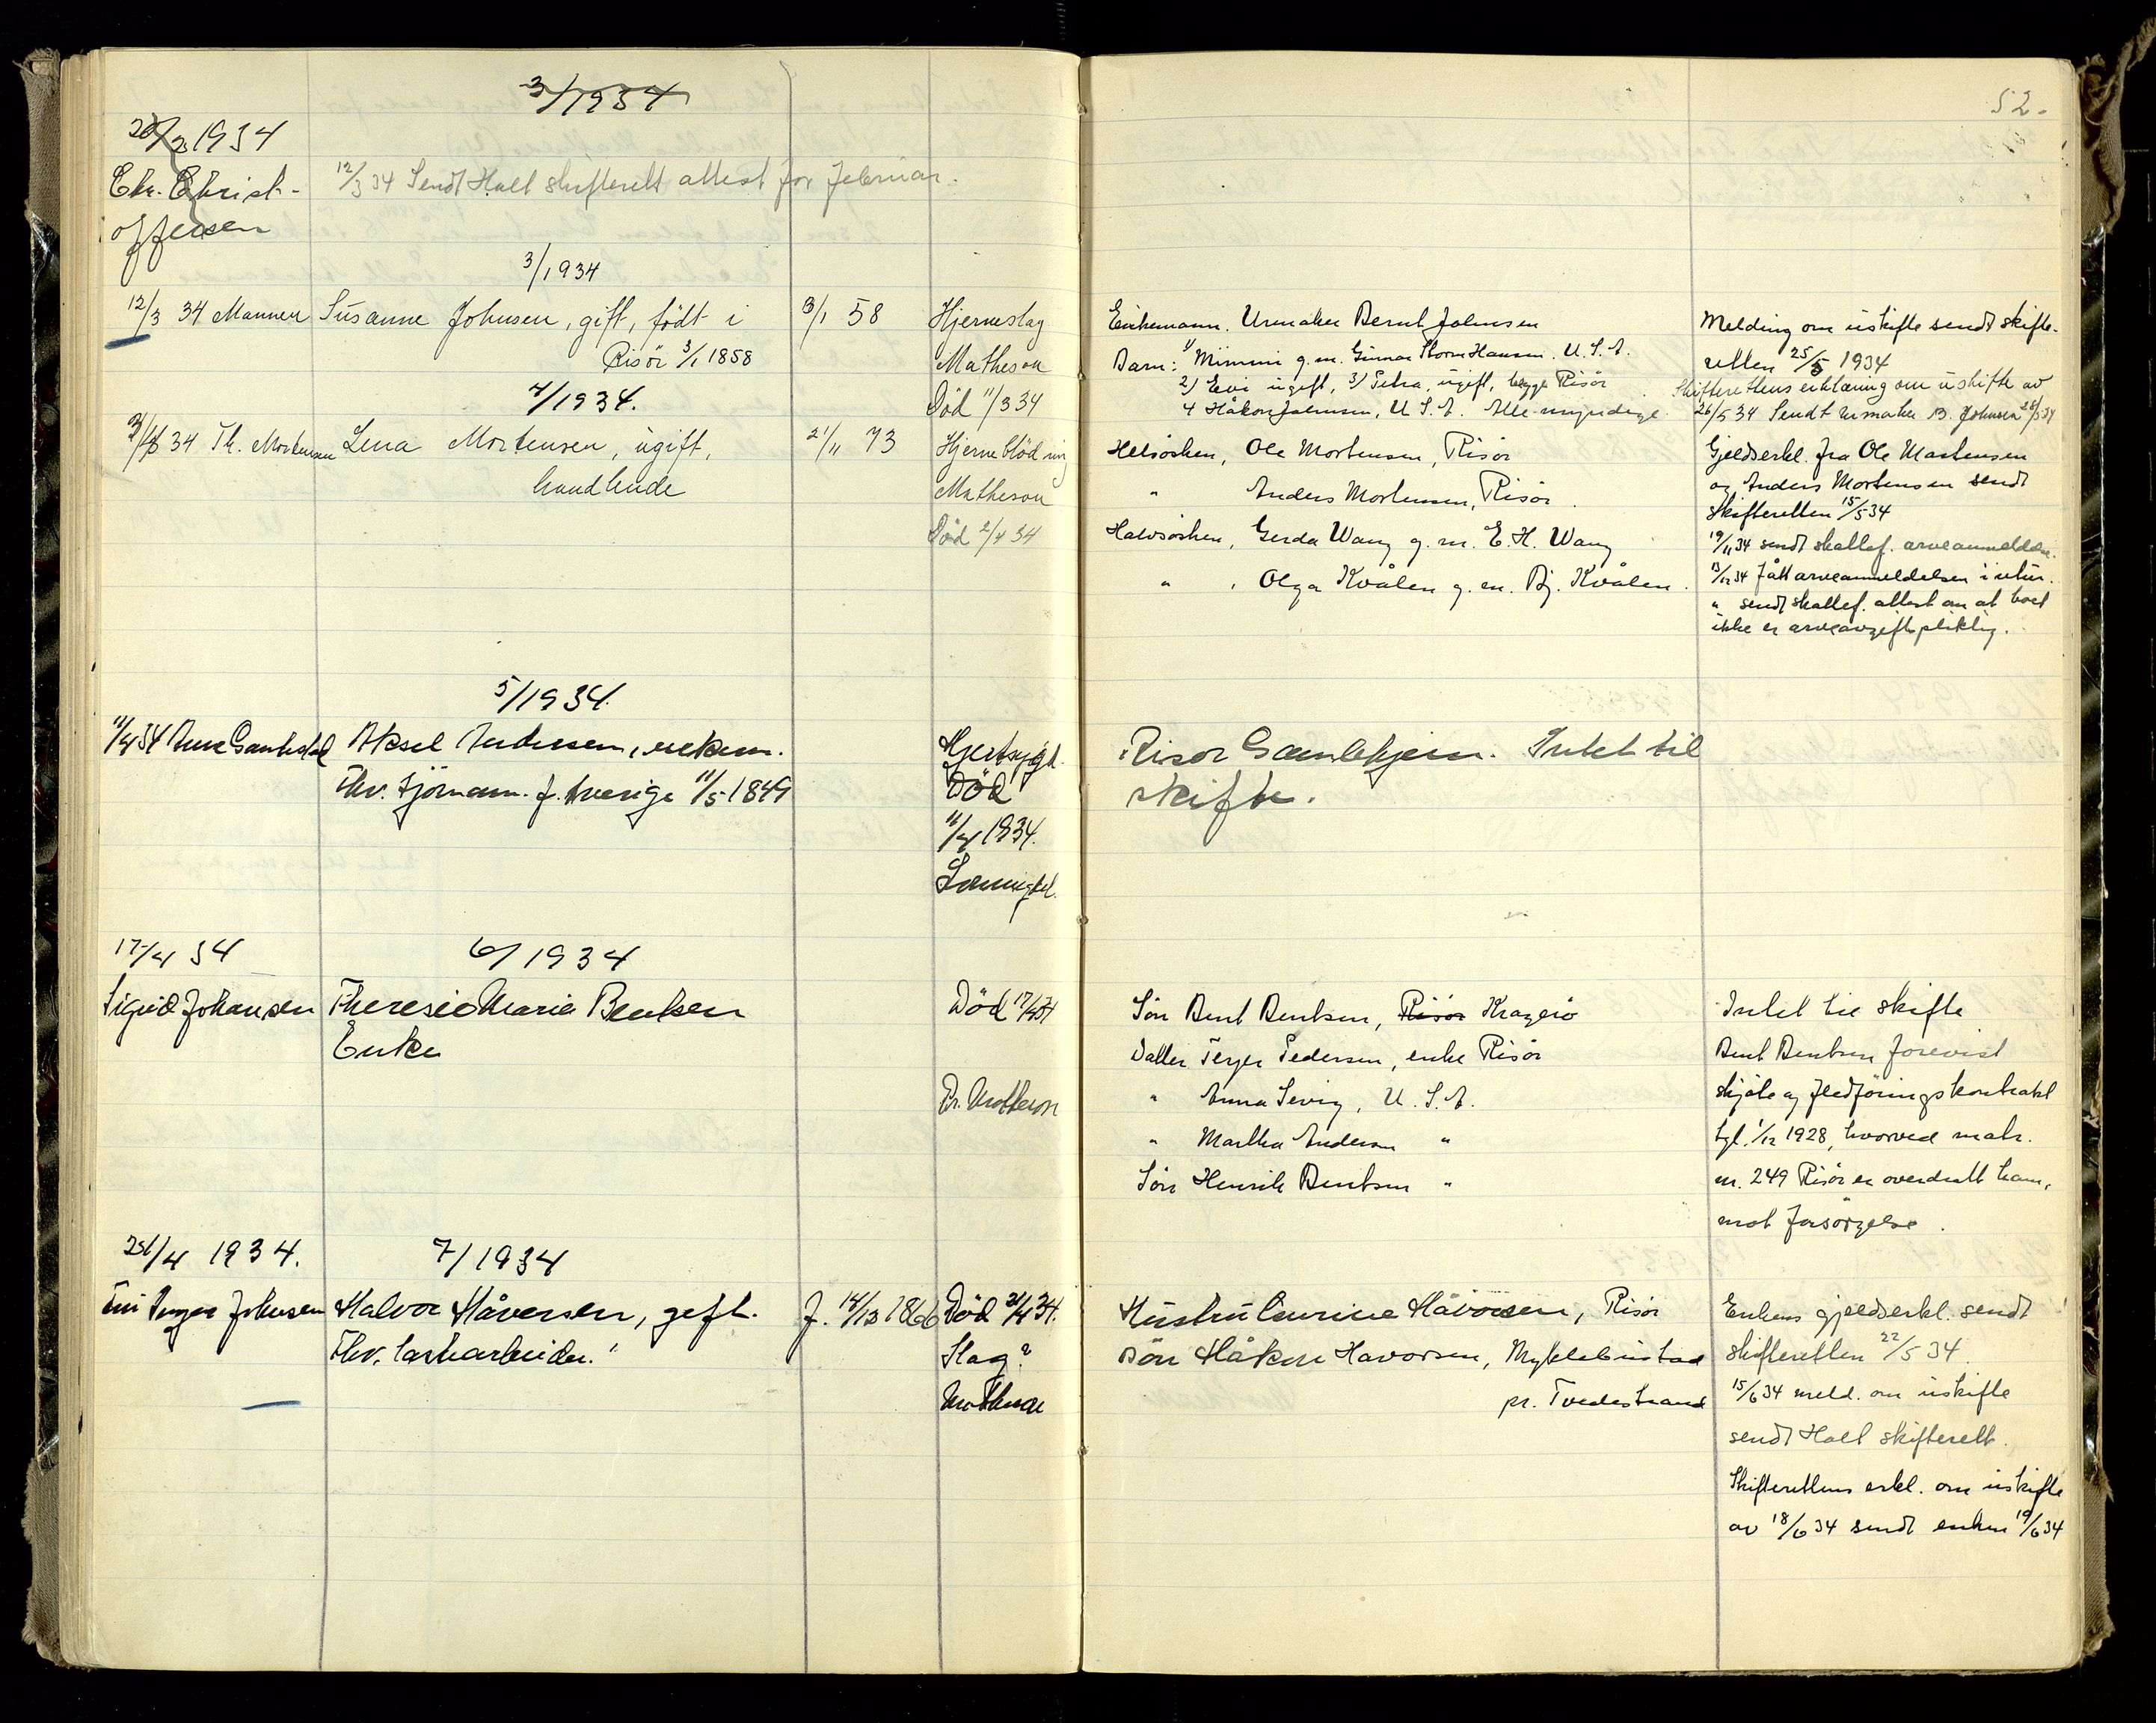 52.
3/1934
20/3 1934
Chr. Christ-
offersen
12/3 34 Sendt Holt skifterett attest for februar.
3/1934
12/3 34 Mannen Susanne Johnsen, gift, født i
Risör 3/1 1858
3/1 58
Hjerneslag
Matheson
Död 11/3 34
Enkemann. Urmaker Bernt Johnsen
Barn: 1) Mimmi g.m. Gunnar Storm Hansen. U.S.A.
2) Evi ugift, 3) Petra, ugift, begge Risör
4 Håkon Johnsen, U.S.A. Alle myndige.
Melding om uskifte sendt skifte-
retten 25/5 1934
Skifterettens erklæring om uskifte av
26/5 34 Sendt urmaker B. Johnsen 28/5 34
4/1934.
3/4 34 Th. Mortensen Lena Mortensen, ugift,
handlende
21/11 73
Hjerneblödning
Matheson
Död 2/4 34
Helsösken, Ole Mortensen, Risör
" Anders Mortensen, Risör.
Halvsösken, Gerda Wang g.m. E.H. Wang
" , Olga Kvålen g.m. Bj. Kvålen.
Gjeldserkl. fra Ole Mortensen
og Anders Mortensen sendt
Skifteretten 15/5 34
19/11 34 sendt skattef. arveanmeldelse.
13/12 34 fått arveanmeldelsen i retur.
" sendt skattef. attest om at boet
ikke er arveavgiftspliktig.
5/1934.
11/4 34 Aksel Andersen, enkem.
Fhv. Sjömann. f. Sverige 11/5 1849
Hjertesygd.
Död
11/4 1934.
Risör Gamlehjem. Intet til
skifte.
17/4 34
6/1934
Sigrid Johansen Theresie Maria Bentsen
Enke
Död 17/4 34
Dr. Matheson
Sön Bent Bentsen, Risör Kragerö
Datter Terjer Pedersen, enke Risör
" Anna Sevig, U.S.A.
" Martha Anderson "
Sön Henrik Bentsen "
Intet til skifte
Bent Bentsen forevist
skjöte og fledföringskontrakt
tgl. 1/12 1928, hvorved matr.
nr. 249 Risör er overdratt ham,
mot forsörgelse.
21/4 1934.
7/1934
Fru Inger Johnsen Halvor Håversen, gift.
Fhv. lastearbeider.
f. 14/12 1866
Död 21/4 34.
Slag?
Matheson
Hustru Laurine Håvorsen, Risör
Sön Håkon Havorsen, Myklebustad
pr. Tvedestrand
Enkens gjeldserkl. sendt
skifteretten 22/5 34.
15/6 34 meld. om uskifte
sendt Holt skifterett.
Skifterettens erkl. om uskifte
av 18/6 34 sendt enken 19/6 34